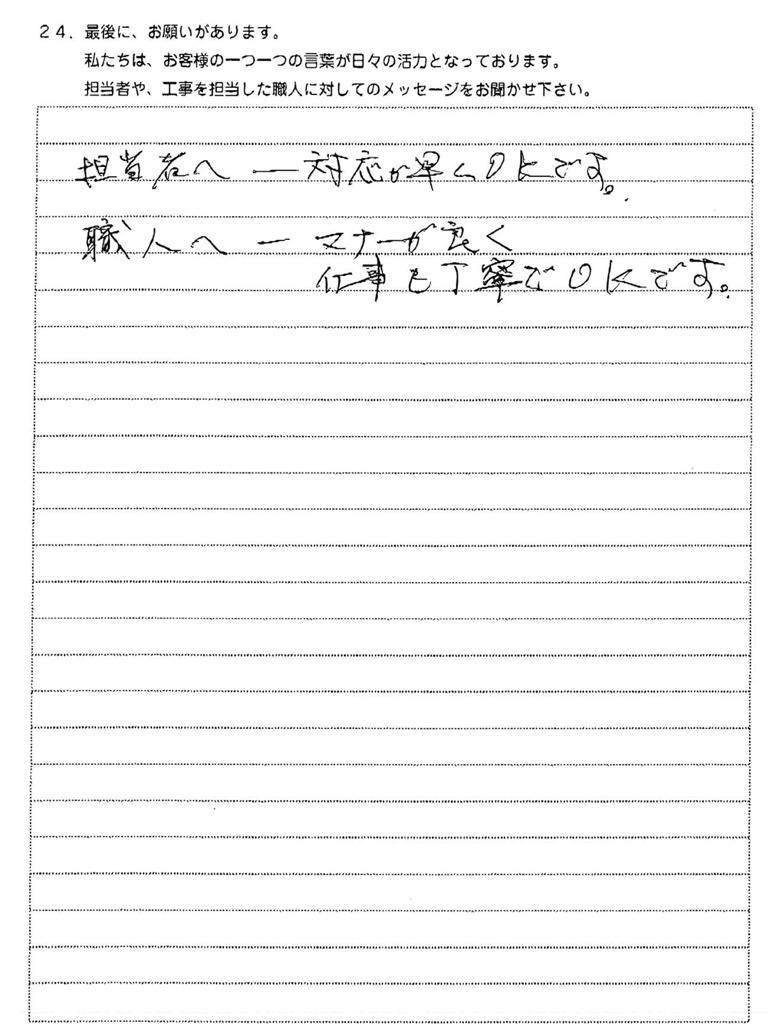 24．最後に、お願いがあります。
私たちは、お客様の一つ一つの言葉が日々の活力となっております。
担当者や、工事を担当した職人に対してのメッセージをお聞かせ下さい。
担当者へ ― 対応が早くOKです。
職人へ ― マナーが良く
仕事も丁寧でOKです。